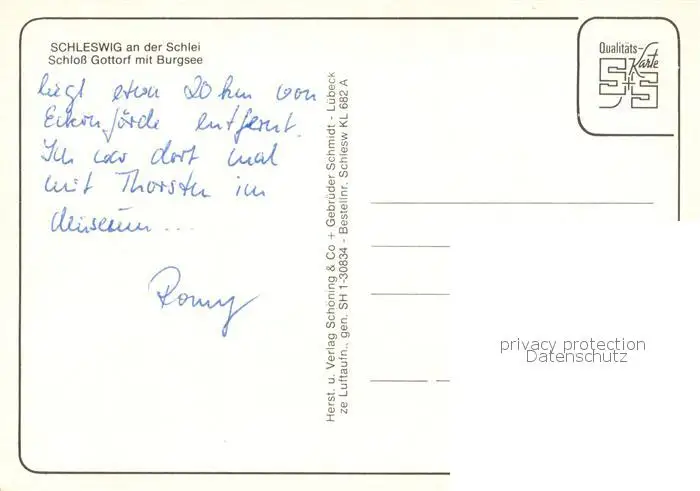 SCHLESWIG an der Schlei
Schloß Gottorf mit Burgsee
liegt etwa 20 km von
Eckernförde entfernt.
Ich war dort mal
mit Thorsten im
Museum ...
Romy
Herst. u. Verlag Schöning & Co + Gebrüder Schmidt - Lübeck
ze Luftaufn., gen. SH 1-30834 - Bestellnr. Schlesw KL 682 A
Qualitäts-
Karte
S+S
privacy protection
Datenschutz